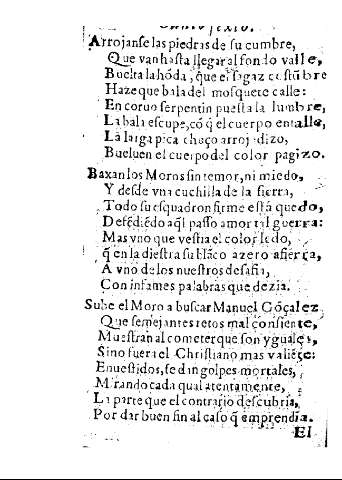 Canto sexto.
Arrojanse las piedras de su cumbre,
Que van hasta llegar al fondo valle,
Buelta la hõda, que el sagaz costũbre
Haze que bala del mosquete calle:
En coruo serpentin puesta la lumbre,
La bala escupe, cõ q̃ el cuerpo entalle,
La larga pica arrojadizo,
Bueluen el cuerpo del color pagizo.
Baxan los Moros sin temor, ni miedo,
Y desde vna cuchilla de la sierra,
Todo su esquadron firme està quedo,
Defẽdiẽdo aq̃l passo a mortal guerra:
Mas vno que vestia el color ledo,
q̃ en la diestra su blãco azero afierra,
A vno de los nuestros desafia,
Con infames palabras que dezia.
Sube el Moro a buscar Manuel Gõçalez
Que semejantes retos mal consiente,
Muestran al cometer que son yguales,
Si no fuera el Christiano mas valiẽte:
Enuestidos, se dan golpes mortales,
Mirando cada qual atentamente,
La parte que el contrario descubria,
Por dar buen fin al caso q̃ emprendia.
El